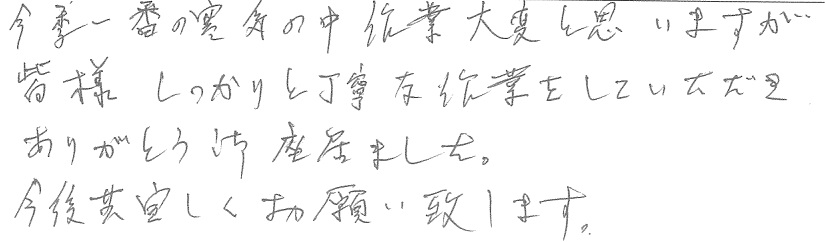 今季一番の寒気の中作業大変と思いますが
皆様しっかりと丁寧な作業をしていただき
ありがとう御座居ました。
今後共宜しくお願い致します。